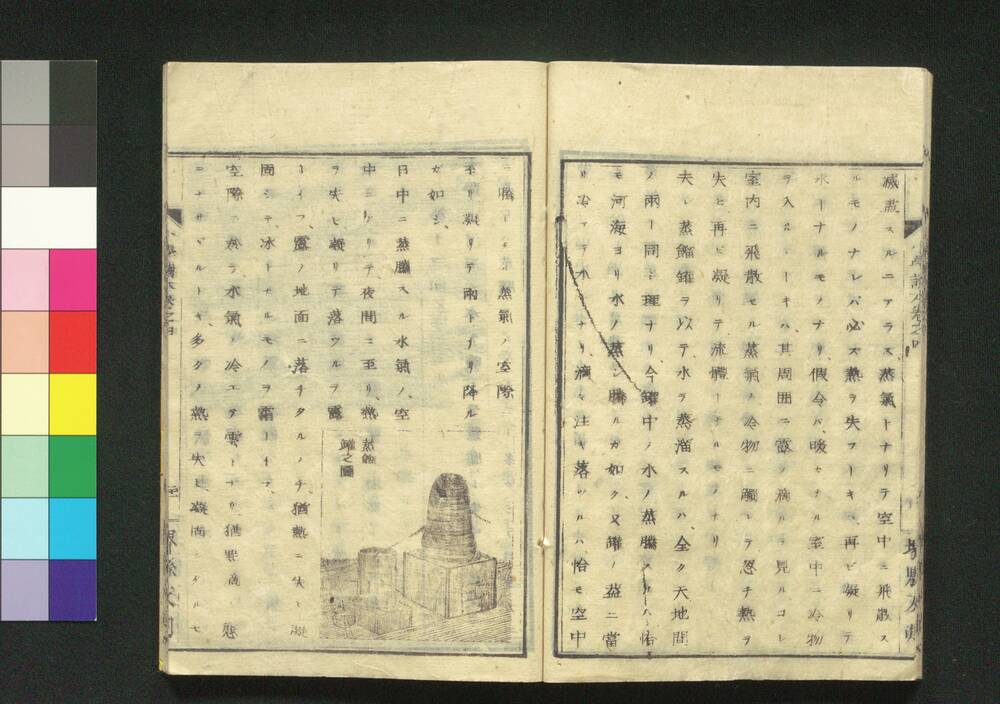 滅盡スルニアラス蒸氣トナリテ空中ニ飛散ス
ルモノナレバ必ス熱ヲ失フトキハ再ビ凝リテ
水トナルモノナリ假令バ暖キナル室中ニ冷物
ヲ入ルトキハ其周囲ニ露ノ滴ルヲ見ルコレ
室内ニ飛散セル蒸氣ノ冷物ニ觸レテ忽チ熱ヲ
失ヒ再ビ凝リテ流體トナルモノナリ
夫レ蒸餾罐ヲ以テ水ヲ蒸溜スルハ全ク天地間
ノ雨ト同シ理ナリ今罐中ノ水ノ蒸騰スルハ恰
モ河海ヨリ水ノ蒸シ騰ルガ如ク又罐ノ蓋ニ當
リ冷エテ水トナリ滴々注キ落ツルハ恰モ空中
ニ騰リシ蒸氣ノ空際
至リ凝リテ雨トナリ降ル
ガ如シ
日中ニ蒸騰スル水氣ノ空
中ニアリテ夜間ニ至リ熱
ヲ失ヒ凝リテ落ツルヲ露
トイフ露ノ地面ニ落チタルノチ猶熱ヲ失ヒ凝
固シテ冰トナルモノヲ霜トイフ
空際ノ水氣ノ冷エテ雲トナリ猶
ニナサザルトキ多クノ熱ヲ失ヒ凝固シタルモ
蒸餾
罐之圖